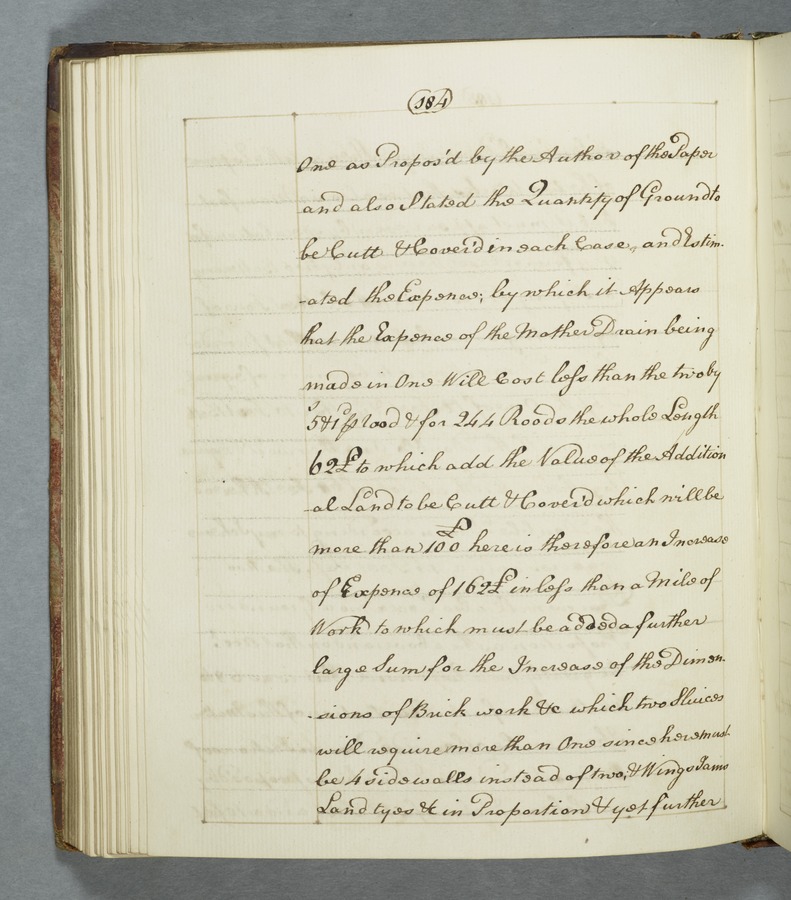 184
One as Propos'd by the Author of the Paper
and also Stated the Quantity of Ground to
be Cutt & Cover'd in each Case, and Estim-
-ated the Expence; by which it Appears
that the Expence of the Mother Drain being
made in One Will Cost less than the two by
5s & 1d p rood & for 244 Roods the whole Length
62£ to which add the Value of the Addition
-al Land to be Cutt & Cover'd which will be
more than 100£ here is therefore an Increase
of Expence of 162£ in less than a Mile of
Work to which must be added a further
large Sum for the Increase of the Dimen-
-sions of Brick work &c which two Sluices
will require more than One since here must
be 4 side walls instead of two, & Wings Jams
Land tyes &c in Proportion & yet further